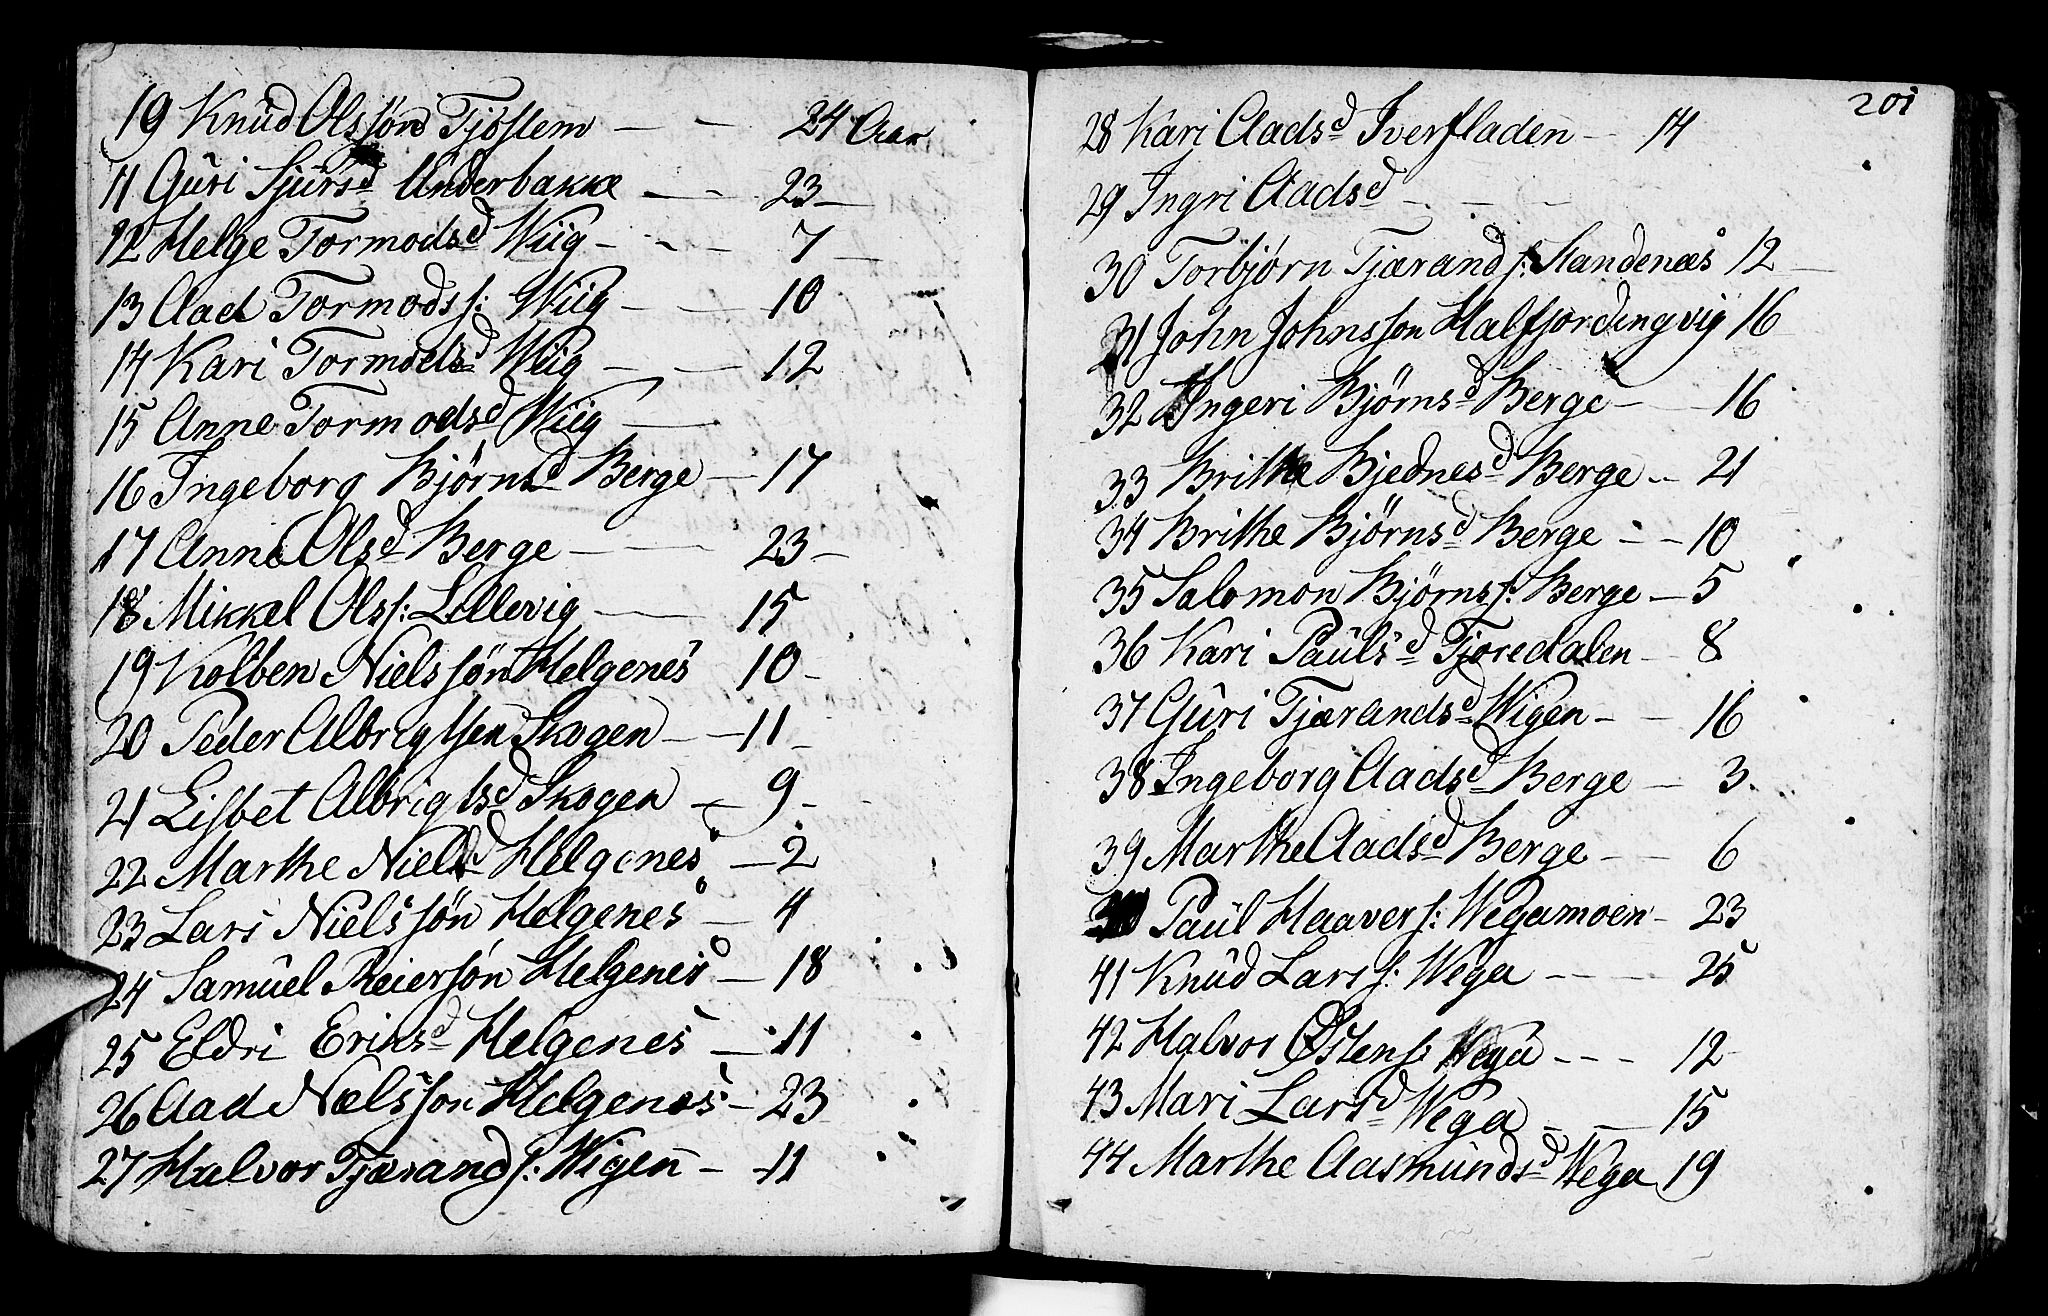 19 Knud Olssøn Tjøstem — — 24 Aar
11 Guri Sjursd Underbakke — — 23 —
12 Helge Tormodsd Wiig - - — 7 —
13 Aad Tormods s: Wiig — — 10
14 Kari Tormodsd Wiig — — 12
15 Anne Tormodsd Wiig —
16 Ingeborg Bjørnsd Berge — 17
17 Anne Olsd Berge — — 23 —
18 Mikkel Ols s: Lillevig — — 15
19 Kolben Nielssøn Helgenes 10 -
20 Peder Albrigtsen Skogen — — 11 -
21 Lisbet Albrigtsd Skogen — 9 -
22 Marthe Nielsd Helgenes — 2
23 Lars Nielssøn Helgenes — 4
24 Samuel Reiersøn Helgenes — 18
25 Eldri Eriksd Helgenes — 11
26 Aad Nielssøn Helgenes — 23
27 Halvor Tjærand s: Wigen — 11
201
28 Kari Aadsd Iversladen — 14
29 Ingri Aadsd - - -
30 Torbjørn Tjærand s: Sandenæs 12 —
31 John Johnsson Halfjordingvig 16
32 Ingeri Bjørnsd Berge — — 16
33 Brithe Bjednesd Berge - - 21
34 Brithe Bjørnsd Berge - - 10
35 Salomon Bjørns s: Berge — 5
36 Kari Paulsd Tjoredalen — 8
37 Guri Tjærandsd Wigen - — 16
38 Ingeborg Aadsd Berge — 3.
39 Marthe Aadsd Berge — — 6
Paul Haavers: Wegamoen - 23
41 Knud Lars s: Wega — — 25
42 Halvor Østens: Wega - - - 12
43 Mari Larsd Wega — — 15
44 Marthe Aasmundsd Wega 19